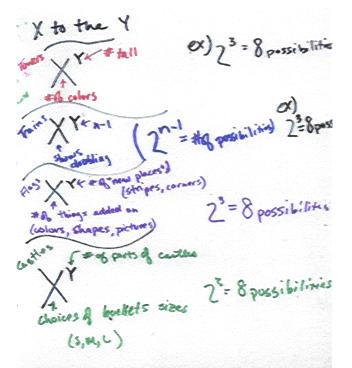 X to the Y
ex) 2³ = 8 possibilities
Towers
X Y ← # tall
# of colors
Trains
X Y ← n-1
shows doubling
2ⁿ⁻¹ = # of possibilities
ex)
2³=8 poss
Flags
X Y ← # of "new places"
(stripes, corners)
# of things added on
(colors, shapes, pictures)
2³ = 8 possibilities
Castles
X Y
# of parts of castle
choices of buckets sizes
(S, M, L)
= 8 possibilities